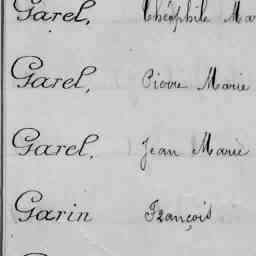 Garel, Théophile Ma
Garel, Pierre Marie
Garel, Jean Marie
Garin François